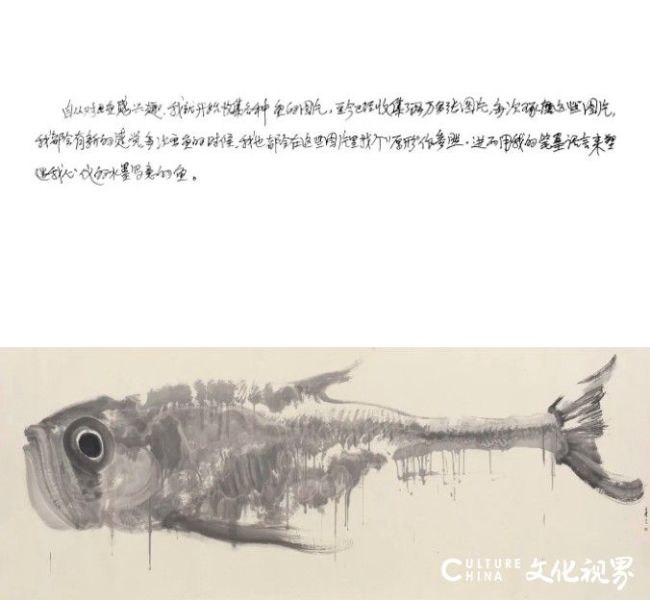 自从对画鱼感兴趣，我就开始收集各种鱼的图片，至今已经收集了两万余张图片，每次琢磨这些图片，
我都会有新的感觉，每次画鱼的时候，我也都会在这些图片里找个原形作参照，进而用我的笔墨语言来塑
造我心仪的水墨写意的鱼。
CULTURE
CHINA 文化视界